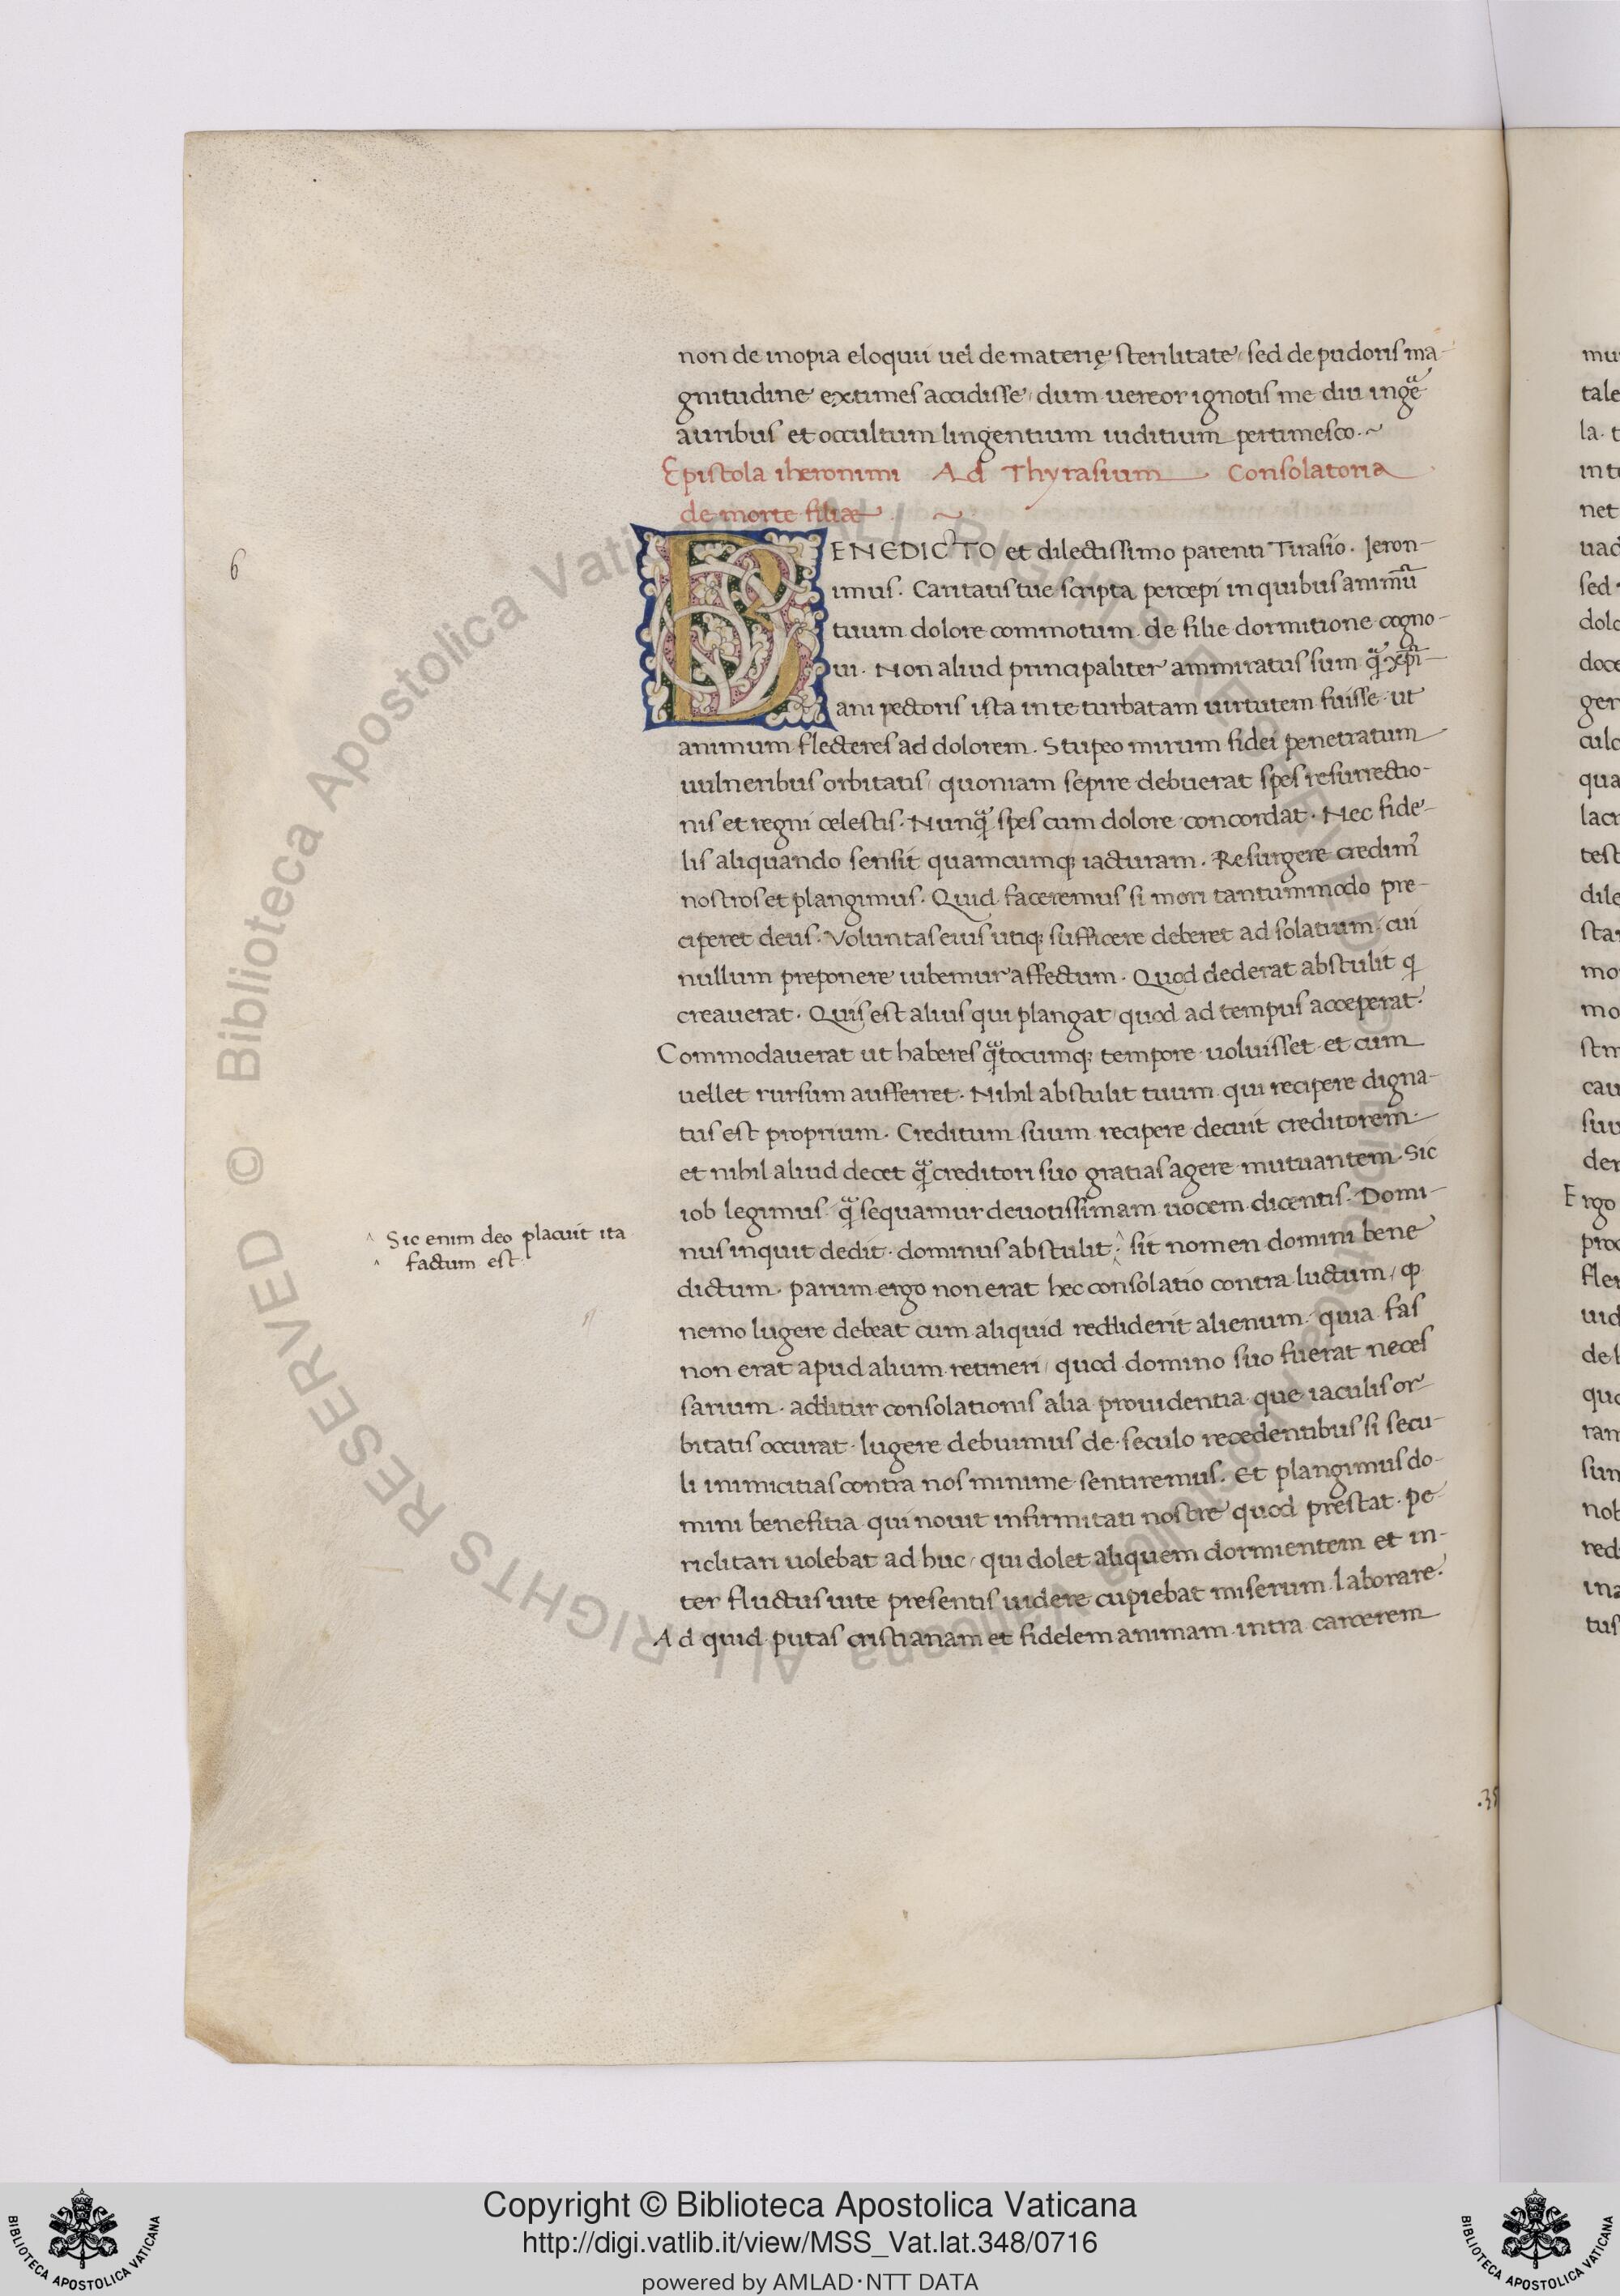 non de inopia eloquii uel de materię sterilitate sed de pudoris ma-
gnitudine extimes accidisse dum uereor ignotis me diu ingeͣ
auribus et occultum lingentium iuditium pertimesco.~
Epistola iheronimi Ad Thyrasium Consolatoria
de morte filiæ ~
BENEDICTO et dilectissimo parenti Tirasio. Jeron-
imus. Caritatis tue scripta percepi in quibus animū
tuum dolore commotum de filie dormitione cogno-
ui. Non aliud principaliter ammiratus sum qͣ xp̄i-
ani pectoris ista in te turbatam uirtutem fuisse ut
animum flecteres ad dolorem. Stupeo mirum fidei penetratum
uulneribus orbitatis quoniam sepire debuerat spes resurrectio-
nis et regni celestis. Nunqͣ spes cum dolore concordat. Nec fide-
lis aliquando sensit quamcumqꝫ iacturam. Resurgere credimꝰ
nostros et plangimus. Quid faceremus si mori tantummodo pre-
ciperet deus. Voluntas eius utiqꝫ sufficere deberet ad solatium cui
nullum preponere iubemur affectum. Quod dederat abstulit q
creauerat. Quis est alius qui plangat quod ad tempus acceperat.
Commodauerat ut haberes qͣtocumqꝫ tempore uoluisset et cum
uellet rursum aufferret. Nihil abstulit tuum qui recipere digna-
tus est proprium. Creditum suum recipere decuit creditorem.
et nihil aliud decet qͣ creditori suo gratias agere mutuantem. Sic
iob legimus. qͣ sequamur deuotissimam uocem dicentis. Domi-
nus inquit dedit. dominus abstulit.^ sit nomen domini bene
dictum. parum ergo non erat hec consolatio contra luctum ꝙ
nemo lugere debeat cum aliquid reddiderit alienum. quia fas
non erat apud alium retineri quod domino suo fuerat neces
sarium. additur consolationis alia prouidentia que iaculis or
bitatis occurat. lugere debuimus de seculo recedentibus si secu-
li inimicitias contra nos minime sentiremus. Et plangimus do-
mini benefitia qui nouit infirmitati nostre quod prestat. pe
riclitari uolebat ad huc qui dolet aliquem dormientem et in-
ter fluctus uite presentis uidere cupiebat miserum laborare.
Ad quid putas cristianam et fidelem animam intra carcerem
6
^ Sic enim deo placuit ita
^ factum est
© Biblioteca Apostolica Vaticana ALL RIGHTS RESERVED
Copyright © Biblioteca Apostolica Vaticana
http://digi.vatlib.it/view/MSS_Vat.lat.348/0716
powered by AMLAD·NTT DATA
BIBLIOTECA APOSTOLICA VATICANA
BIBLIOTECA APOSTOLICA VATICANA